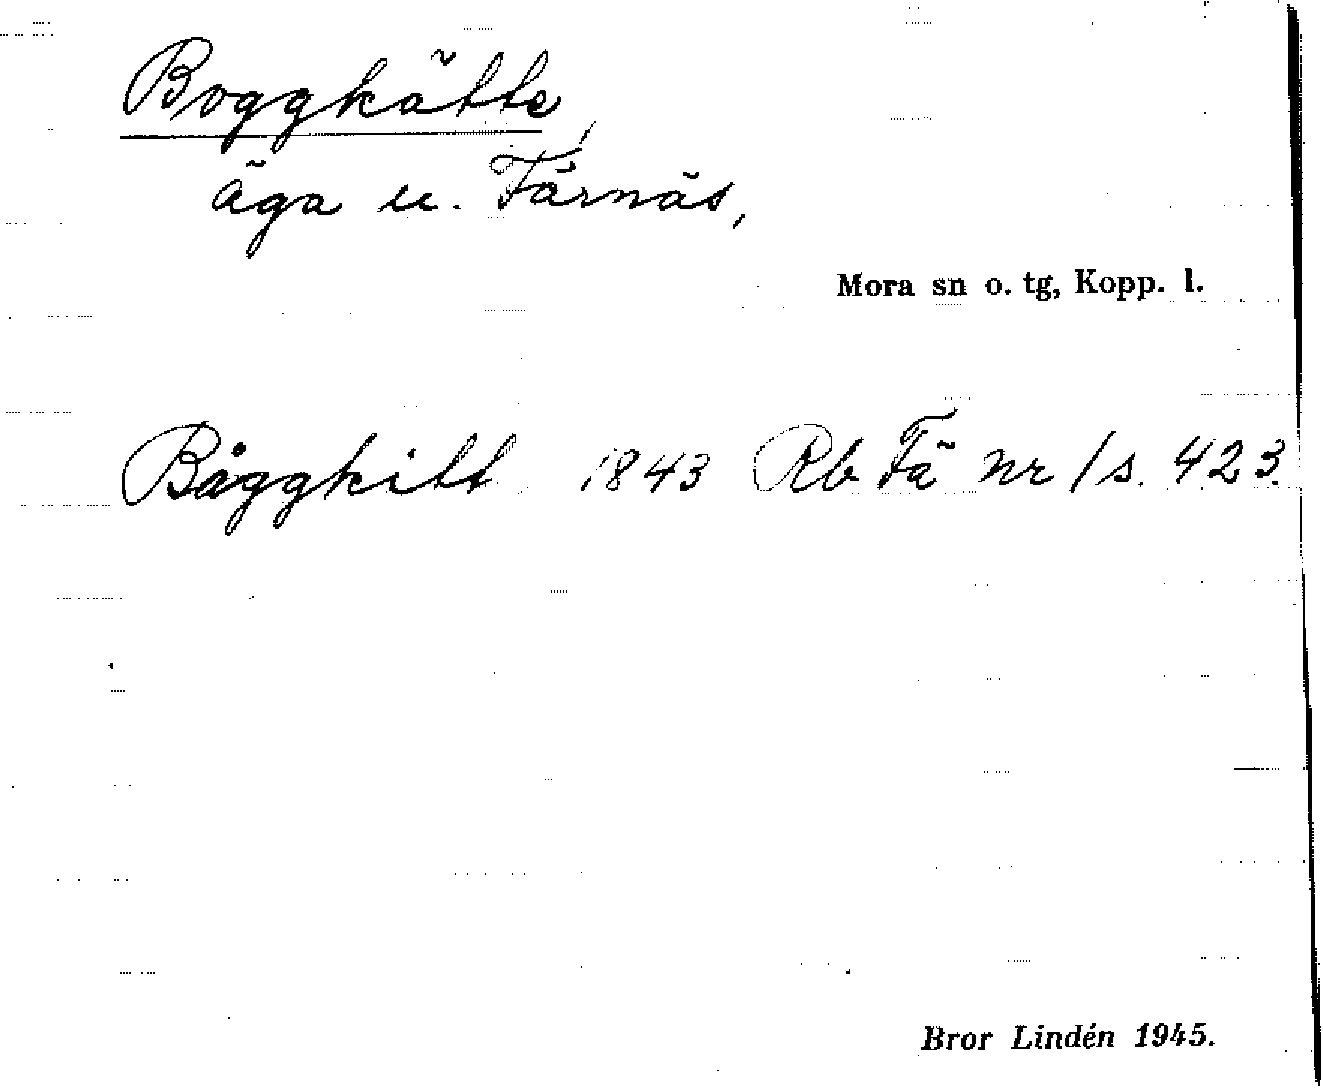 Boggkätte,
äga u. Färnäs,
Mora sn o. tg, Kopp. l.
Båggkitt 1843 Rb Fä nr 1 s. 423.
Bror Lindén 1945.